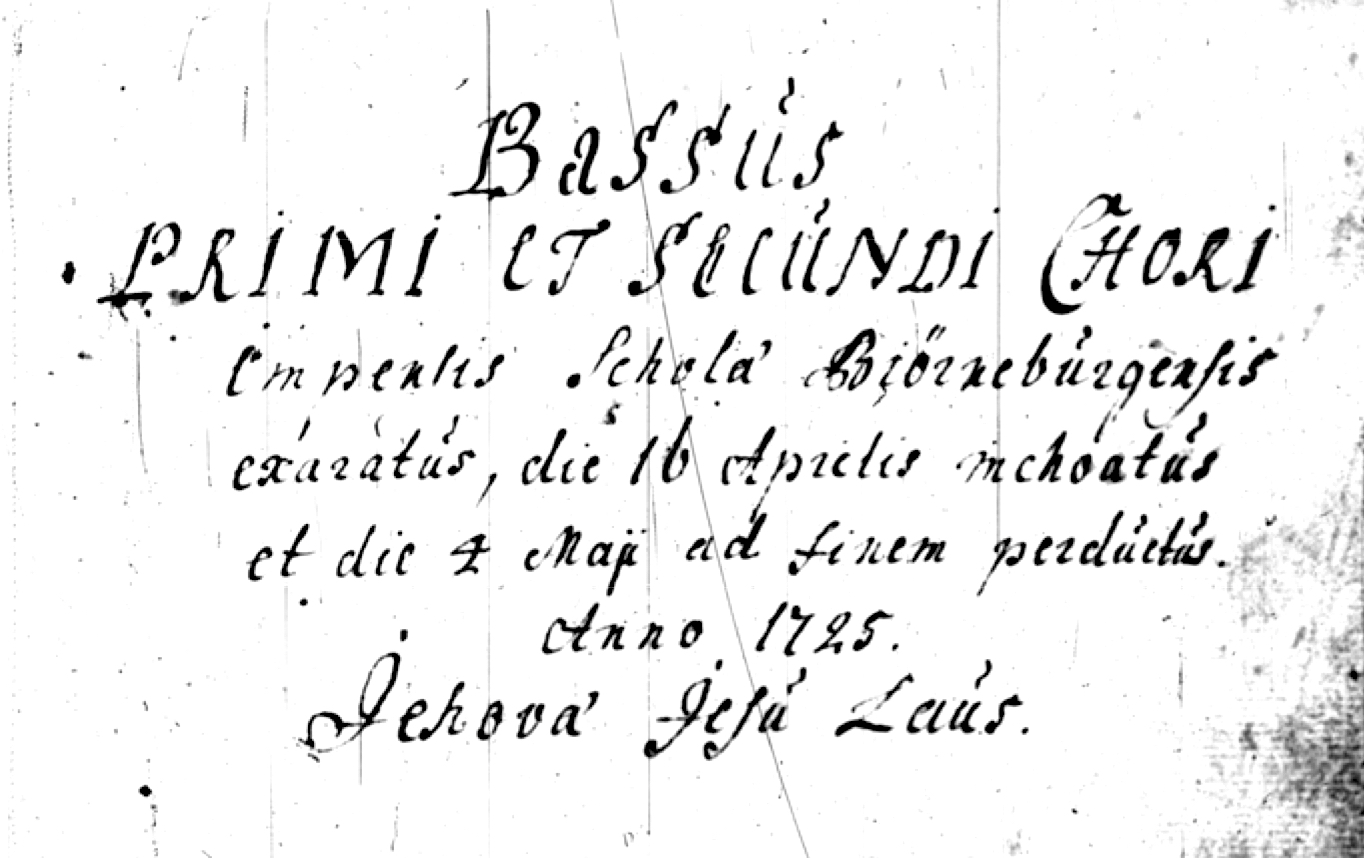 Bassus
PRIMI ET SECUNDI CHORI
Impensis Schola Björneburgensis
exaratus, die 16 Aprilis inchoatus
et die 4 Maji ad finem perductus.
Anno 1725.
Jehova Jesu Laus.